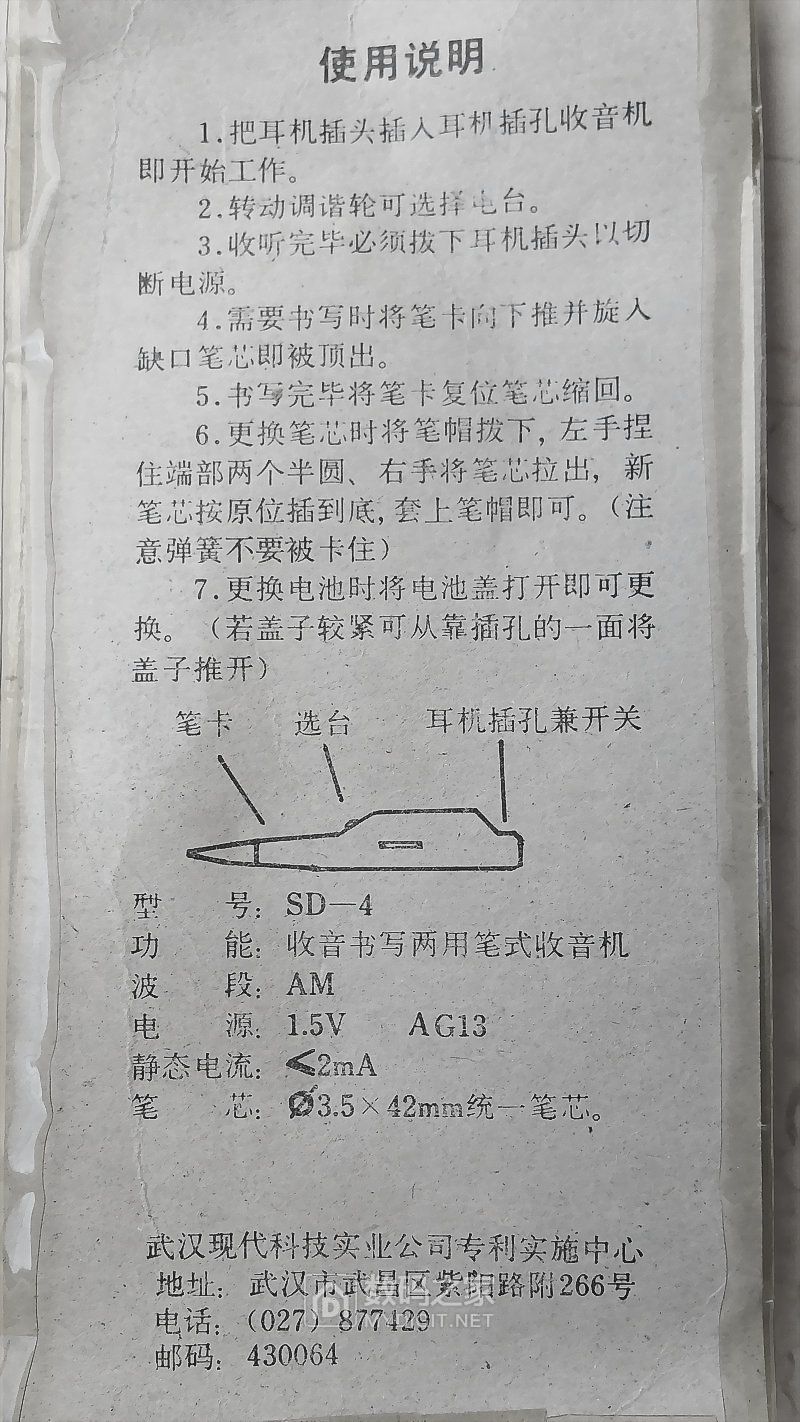 使用说明
1.把耳机插头插入耳机插孔收音机
即开始工作。
2.转动调谐轮可选择电台。
3.收听完毕必须拨下耳机插头以切
断电源。
4.需要书写时将笔卡向下推并旋入
缺口笔芯即被顶出。
5.书写完毕将笔卡复位笔芯缩回。
6.更换笔芯时将笔帽拨下,左手捏
住端部两个半圆、右手将笔芯拉出,新
笔芯按原位插到底,套上笔帽即可。(注
意弹簧不要被卡住)
7.更换电池时将电池盖打开即可更
换。(若盖子较紧可从靠插孔的一面将
盖子推开)
笔卡 选台 耳机插孔兼开关
型 号: SD—4
功 能: 收音书写两用笔式收音机
波 段: AM
电 源: 1.5V AG13
静态电流: ≤2mA
笔 芯: Ø3.5×42mm统一笔芯。
武汉现代科技实业公司专利实施中心
地址: 武汉市武昌区紫阳路附266号
电话: (027) 877429
邮码: 430064
数码之家
MYDIGIT.NET